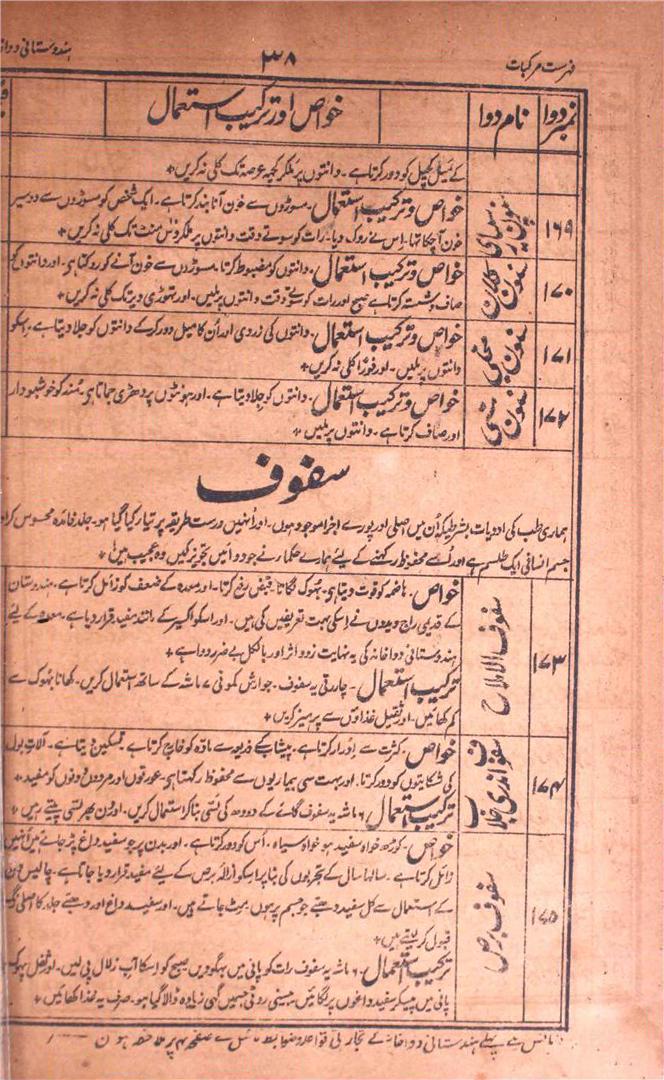 فہرست مرکبات
۳۸
ہندوستانی دوا
نمبر دوا
نام دوا
خواص اور ترکیب استعمال
کے میل کچیل کو دور کرتا ہے۔ دانتوں پر ملکر کچھ عرصہ تک کلی نہ کریں ٭
۱۶۹
سنون
خواص و ترکیب استعمال۔ مسوڑوں سے خون آنا بند کرتا ہے۔ ایک شخص کو مسوڑوں سے دو سیر
خون آچکا تھا۔ اس نے روک دیا۔ رات کو سوتے وقت دانتوں پر ملکر دس منٹ تک کلی نہ کریں ٭
۱۷۰
سنون کلاں
خواص و ترکیب استعمال۔ دانتوں کو مضبوط کرتا۔ مسوڑوں سے خون آنے کو روکتا ہی۔ اور دانتوں کو
صاف و شستہ کرتا ہے صبح اور رات کو سوتے وقت دانتوں پر ملیں۔ اور تھوڑی دیر تک کلی نہ کریں ٭
۱۷۱
سنون مجلی
خواص و ترکیب استعمال۔ دانتوں کی زردی اور اُن کا میل دور کر کے دانتوں کو جلا دیتا ہے۔ اسکو
دانتوں پر ملیں۔ اور فوراً کلی نہ کریں ٭
۱۷۲
سنون مسی
خواص و ترکیب استعمال۔ دانتوں کو جِلا دیتا ہے۔ اور ہونٹوں پر دھڑی جماتا ہی۔ مُنہ کو خوشبودار
اور صاف کرتا ہے۔ دانتوں پر ملیں ٭
سفوف
ہماری طب کی ادویات بشرطیکہ اُن میں اصلی اور پورے اجزا موجود ہوں۔ اور اُنہیں درست طریقہ پر تیار کیا گیا ہو۔ جلد فائدہ محسوس
جسم انسانی ایک طلسم ہے اور اُسے محفوظ رکھنے کے لیے ہمارے حکما نے جو دوائیں تجویز کیں وہ عجیب ہیں
۱۷۳
سفوف الاملاح
خواص۔ ہاضمہ کو قوت دیتا ہی۔ بھوک لگاتا۔ قبض رفع کرتا۔ اور معدہ کے ضعف کو زائل کرتا ہے۔ ہندوستان
کے قدیمی راج ویدوں نے اسکی بہت تعریفیں کی ہیں۔ اور اسکو اکسیر کے مانند مفید قرار دیا ہے۔ معدہ کے لیے
ہندوستانی دواخانہ کی یہ نہایت زود اثر اور بالکل بے ضرر دوا ہے ٭
ترکیب استعمال۔ چار رتی یہ سفوف۔ جوارش کمونی ۷ ماشہ کے ساتھ استعمال کریں۔ کھانا بھوک سے
کم کھائیں۔ اور ثقیل غذاؤں سے پرہیز کریں ٭
۱۷۴
سفوف اندری جلاب
خواص۔ کثرت سے اِدرار کرتا ہے۔ پیشاب کے ذریعہ سے مادہ کو خارج کرتا ہے۔ تسکین دیتا ہے۔ آلات بول
کی شکایتوں کو دور کرتا۔ اور بہت سی بیماریوں سے محفوظ رکھتا ہی۔ عورتوں اور مردوں دونوں کو مفید ٭
ترکیب استعمال ۶ ماشہ یہ سفوف گائے کے دودھ کی لسّی بنا کر استعمال کریں۔ اور دن بھر لسّی پیتے رہیں ٭
۱۷۵
سفوف برص
خواص۔ کوڑھ خواہ سفید ہو خواہ سیاہ۔ اُس کو دور کرتا ہے۔ اور بدن پر جو سفید داغ پڑ جاتے ہیں اُنہیں
زائل کرتا ہے۔ سالہا سال کے تجربوں کی بنا پر اسکو ازالہ برص کے لیے مفید قرار دیا جاتا ہے۔ چالیس دن
کے استعمال سے کل سفید دھبّے جو جسم پر ہوں۔ مِٹ جاتے ہیں۔ اور سفید داغ اور دھبّے جلد کا اصلی رنگ
قبول کر لیتے ہیں ٭
ترکیب استعمال۔ ۶ ماشہ یہ سفوف رات کو پانی میں بھگو دیں صبح کو اسکا آب زلال پی لیں۔ اور ثفل
پانی میں پیسکر سفید داغوں پر لگائیں۔ بیسنی روٹی جسمیں گھی زیادہ ڈالا گیا ہو۔ صرف یہ غذا کھائیں ٭
سے پہلے ہندوستانی دواخانہ کے تجارتی قواعد و ضوابط ٹائٹل کے صفحہ ۲ پر ملاحظہ ہوں